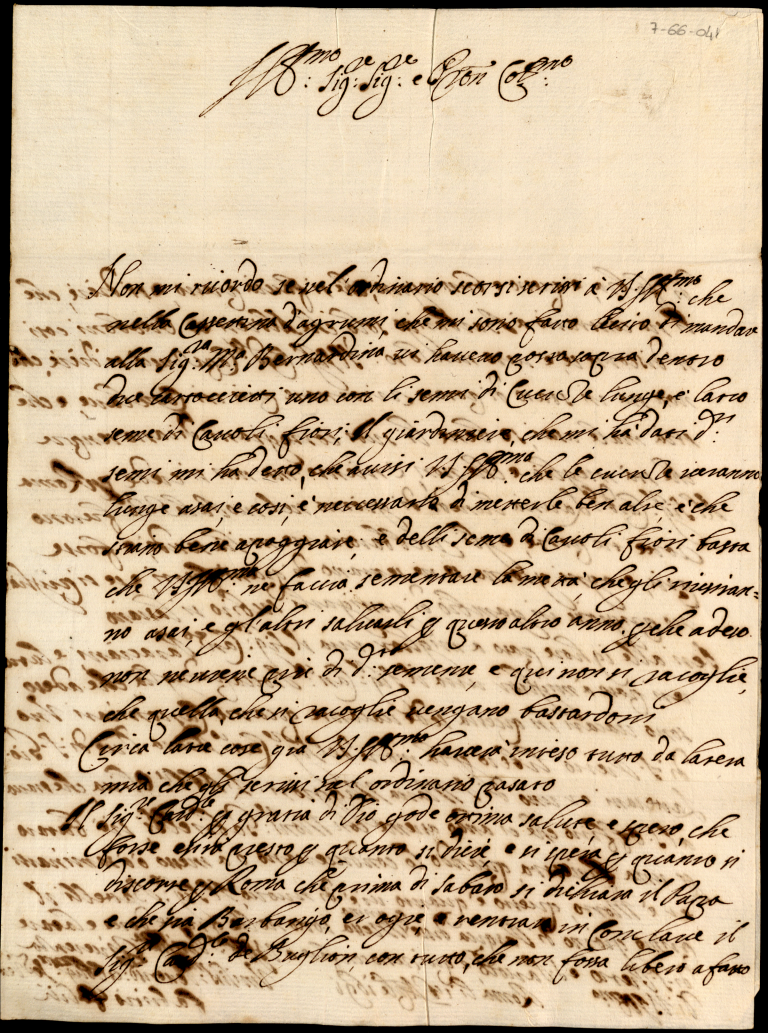 7-66-04r
Ill:mo Sig:re Sig:re e Pron Col:mo
Non mi ricordo se nel'ordinario scorsi scrissi à V.S.Ill:ma che
nella Cassettina d'agrumi, che mi sono fatto lecito di mandare
alla Sig:ra M:a Bernardina vi haveno posto sopra dentro
due cartoccietti uno con li semi di Cucuze lunge, e l'atro
seme di Cauoli fiori, Il giardiniere, che mi ha dati d:ti
semi mi ha detto, che avisi V.S.Ill:ma che le cucuze veranno
lunge asai, e così è neccessario di metterle ben alte, e che
stiano bene apoggiate, e delli seme di Cauoli fiori basta
che V.S.Ill:ma ne faccia sementare la metà, che gli riusiran=
no asai, e gl'altri salvarli p questo altro anno p che adeso
non ne viene più di d:ta semente, e qui non si racoglie,
che quella che si racoglie vengano bastardoni
Circa l'atre cose già V.S.Ill:ma haverà inteso tutto da la tera
mia che gli scrissi nel ordinario pasato
Il Sig:r Card:le p gratia di Dio gode otima salute, e spero, che
forse esirà presto p quanto si dice e si spera p quanto si
discorre p Roma che prima di sabato si dichiara il Papa
e che sia Barbarigo, et ogi è entrato in Conclave il
Sig:r Card:le de Buglion, con tutto, che non fosse libero afatto